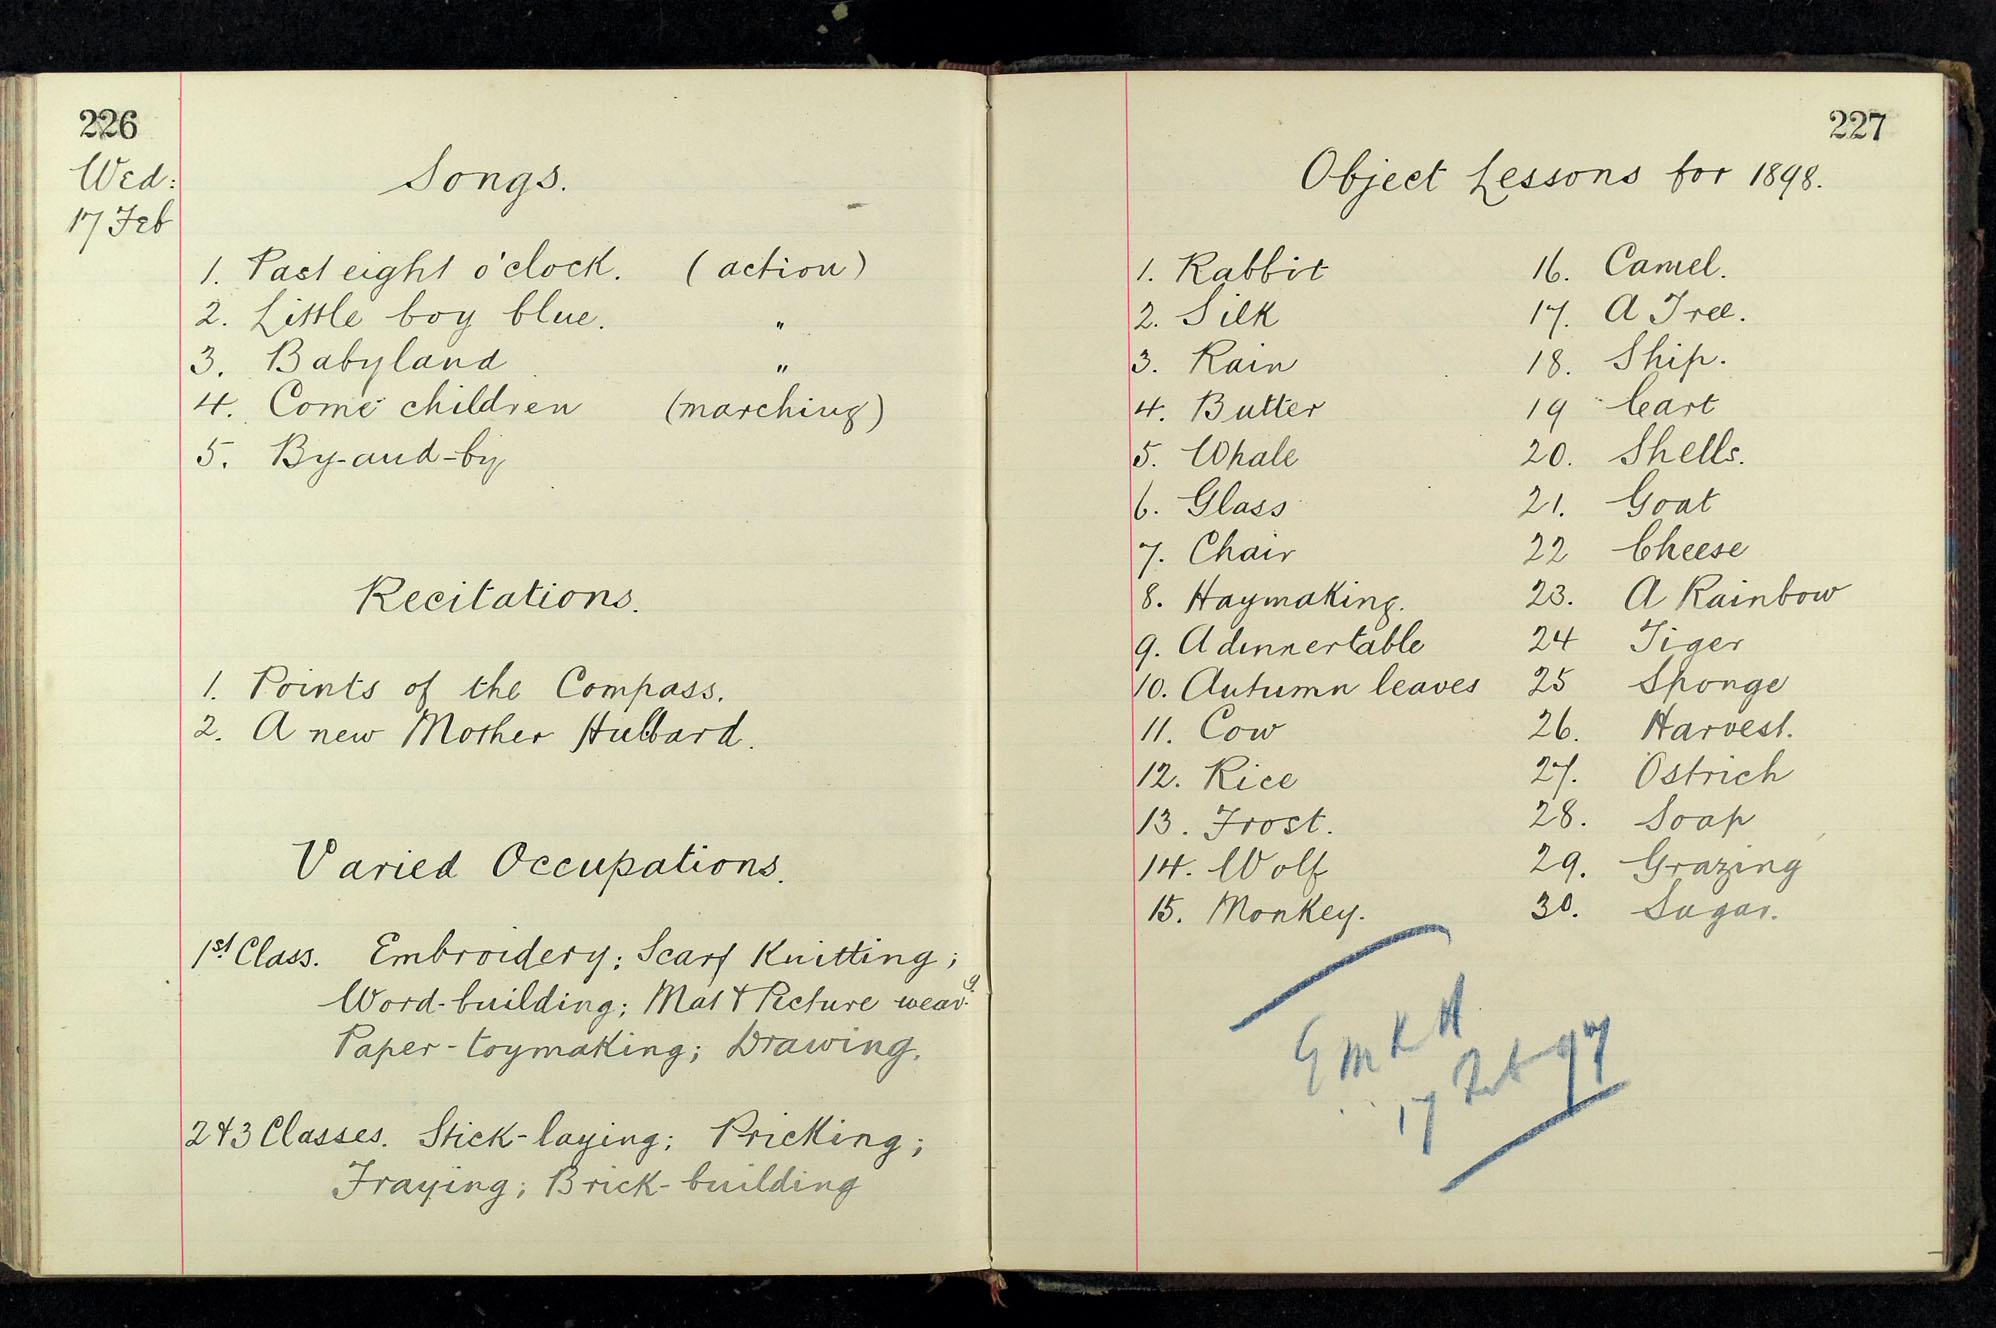 226
Wed:
17 Feb
Songs.
1. Past eight o'clock. (action)
2. Little boy blue. "
3. Babyland "
4. Come children (marching)
5. By-and-by
Recitations.
1. Points of the Compass.
2. A new Mother Hubbard.
Varied Occupations.
1st Class. Embroidery; Scarf Knitting;
Word-building; Mat & Picture weav.g
Paper-toymaking; Drawing.
2 & 3 Classes. Stick-laying; Pricking;
Fraying; Brick-building
227
Object Lessons for 1898.
1. Rabbit
2. Silk
3. Rain
4. Butter
5. Whale
6. Glass
7. Chair
8. Haymaking.
9. A dinnertable
10. Autumn leaves
11. Cow
12. Rice
13. Frost.
14. Wolf
15. Monkey.
16. Camel.
17. A Tree.
18. Ship.
19 Cart
20. Shells.
21. Goat
22 Cheese
23. A Rainbow
24 Tiger
25 Sponge
26. Harvest.
27. Ostrich
28. Soap
29. Grazing
30. Sugar.
G M K H
17 Feb 97